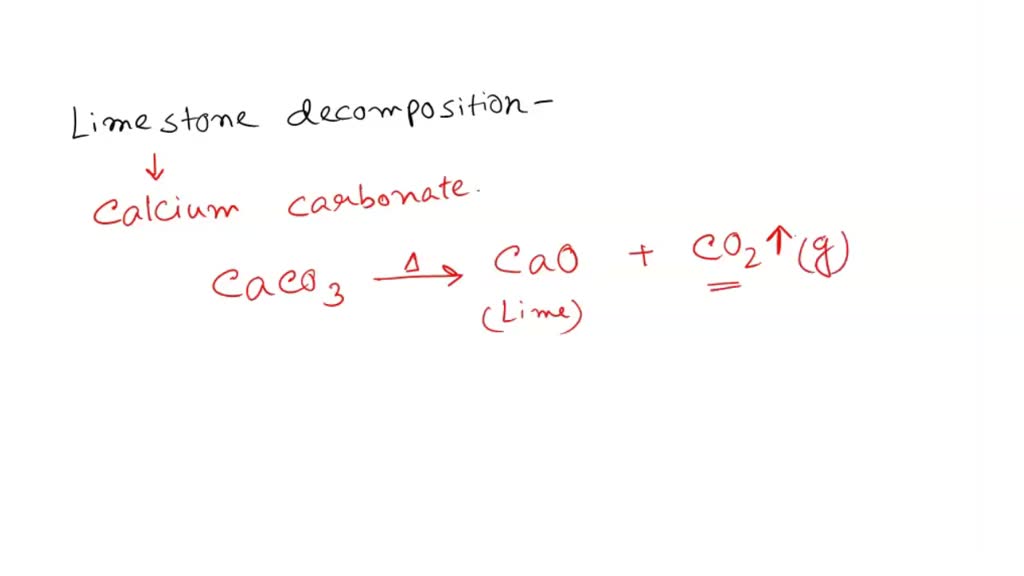 Limestone decomposition-
↓
Calcium carbonate.
CaCO3 —Δ→ CaO + CO2↑(g)
(Lime)